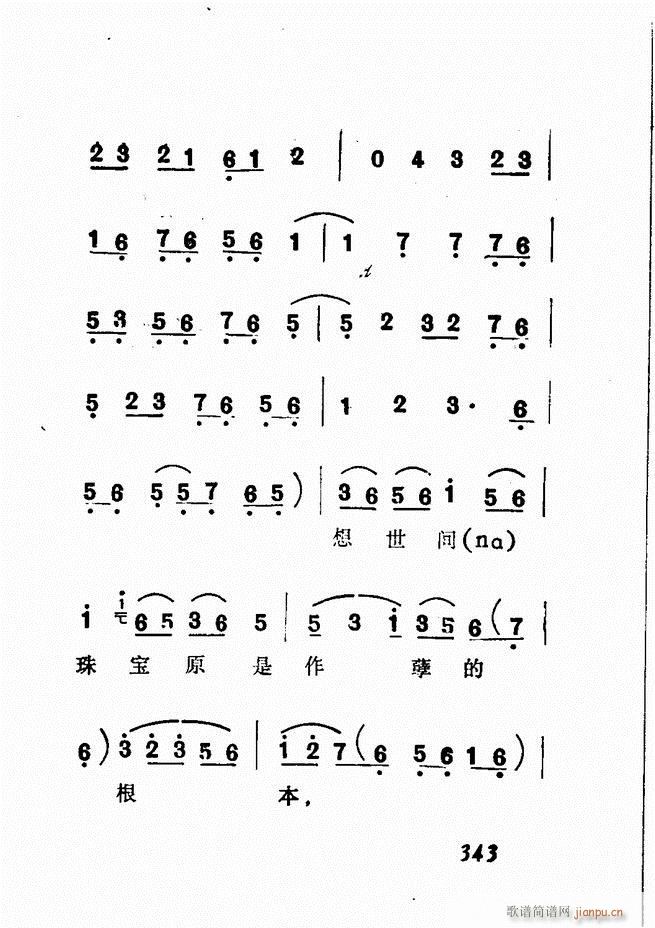 2 3 2 1 6 1 2 | 0 4 3 2 3 |
1 6 7 6 5 6 1 | 1 7 7 7 6 |
5 3 5 6 7 6 5 | 5 2 3 2 7 6 |
5 2 3 7 6 5 6 | 1 2 3· 6 |
5 6 5 5 7 6 5 ) | 3 6 5 6 i 5 6 |
想世间(na)
i i 6 5 3 6 5 | 5 3 i 3 5 6 ( 7 |
珠宝原是作孽的
6 ) 3 2 3 5 6 | i 2 7 ( 6 5 6 1 6 ) |
根本，
343
歌谱简谱网 jianpu.cn